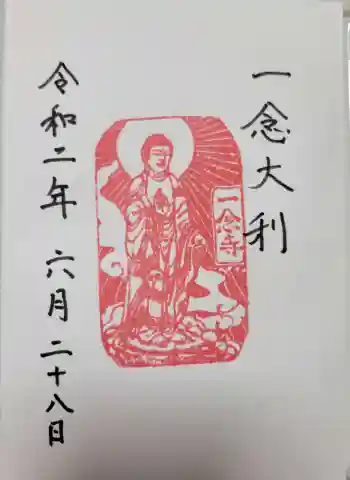 一念大利
一念寺
令和二年 六月二十八日